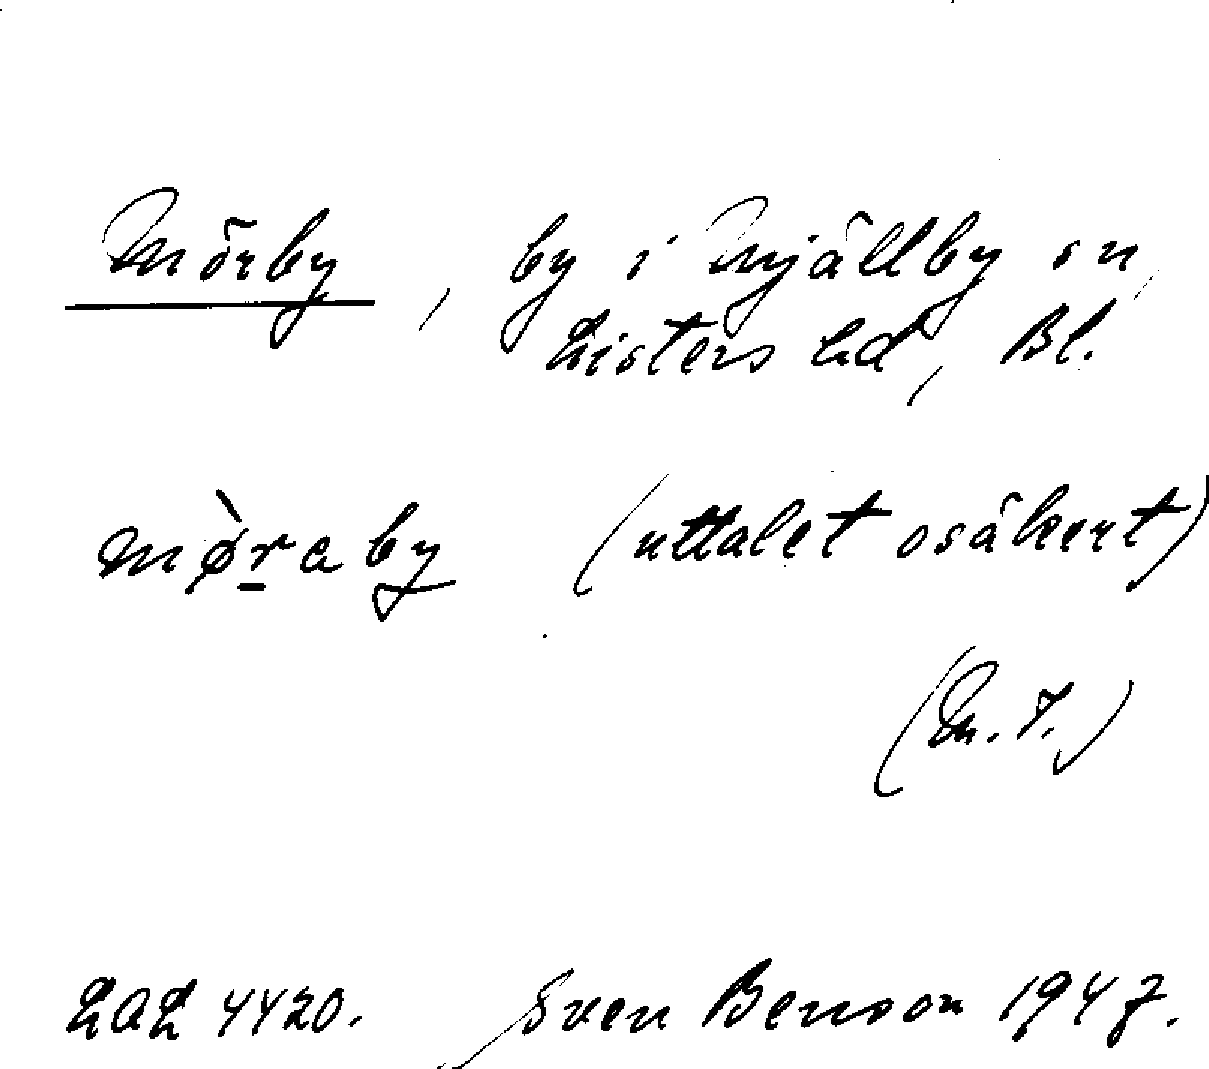 Mörby, by i Mjällby sn,
Listers hd, Bl.
mø̀raby (uttalet osäkert)
(M. T.)
LAL 4420. Sven Benson 1947.